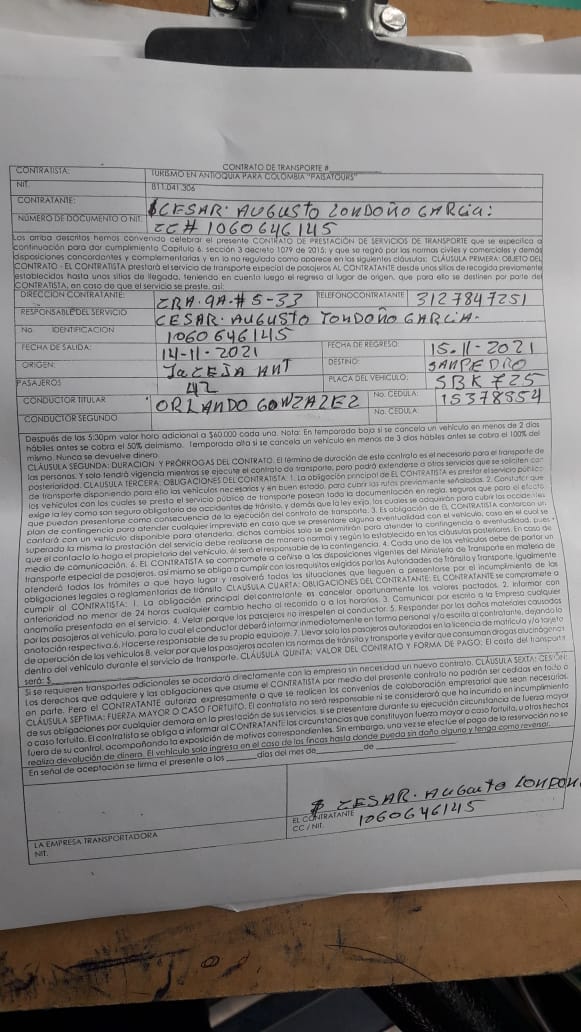 CONTRATO DE TRANSPORTE #
CONTRATISTA: TURISMO EN ANTIOQUIA PARA COLOMBIA "PAISATOURS"
NIT. 811.041.306
CONTRATANTE: CESAR. AUGUSTO LONDOÑO GARCIA:
NUMERO DE DOCUMENTO O NIT. CC# 1060646145
Los arriba descritos hemos convenido celebrar el presente CONTRATO DE PRESTACIÓN DE SERVICIOS DE TRANSPORTE que se especifica a
continuación para dar cumplimiento Capitulo 6, sección 3 decreto 1079 de 2015; y se regirá por las normas civiles y comerciales y demás
disposiciones concordantes y complementarias y en lo no regulado como aparece en las siguientes cláusulas; CLÁUSULA PRIMERA: OBJETO DEL
CONTRATO - EL CONTRATISTA prestará el servicio de transporte especial de pasajeros AL CONTRATANTE desde unos sitios de recogida previamente
establecidos hasta unos sitios de llegada, teniendo en cuenta luego el regreso al lugar de origen, que para ello se destinen por parte del
CONTRATISTA, en caso de que el servicio se preste, así:
DIRECCION CONTRATANTE: CRA. 9A-# 5-33 TELEFONO CONTRATANTE 3127847251
RESPONSABLE DEL SERVICIO CESAR. AUGUSTO LONDOÑO GARCIA.
No. IDENTIFICACION 1060646145
FECHA DE SALIDA: 14-11-2021 FECHA DE REGRESO: 15-11-2021
ORIGEN: LA CEJA ANT DESTINO: SANPEDRO
PASAJEROS 42 PLACA DEL VEHICULO: SBK725
CONDUCTOR TITULAR ORLANDO GONZALEZ No. CEDULA: 15378554
CONDUCTOR SEGUNDO No. CEDULA
Después de las 5:30pm valor hora adicional a $60.000 cada una. Nota: En temporada baja si se cancela un vehículo en menos de 2 días
hábiles antes se cobra el 50% del mismo. Temporada alta si se cancela un vehículo en menos de 3 días hábiles antes se cobra el 100% del
mismo. Nunca se devuelve dinero.
CLÁUSULA SEGUNDA: DURACION Y PRÓRROGAS DEL CONTRATO. El término de duración de este contrato es el necesario para el transporte de
las personas. Y solo tendrá vigencia mientras se ejecute el contrato de transporte, pero podrá extenderse a otros servicios que se soliciten con
posterioridad. CLAUSULA TERCERA: OBLIGACIONES DEL CONTRATISTA 1. La obligación principal de EL CONTRATISTA es prestar el servicio público
de transporte disponiendo para ello las vehículos necesarios y en buen estado, para cubrir las rutas previamente señaladas. 2. Constatar que
los vehículos con los cuales se presta el servicio público de transporte posean toda la documentación en regla, seguros que para el efecto
exige la ley como son seguro obligatorio de accidentes de tránsito, y demás que la ley exija, los cuales se adquirirán para cubrir los accidentes
que puedan presentarse como consecuencia de la ejecución del contrato de transporte. 3. Es obligación de EL CONTRATISTA contar con un
plan de contingencia para atender cualquier imprevisto en caso que se presentare alguna eventualidad con el vehículo, caso en el cual se
contará con un vehículo disponible para atenderla, dichos cambios solo se permitirán para atender la contingencia o eventualidad, pues
superada la misma la prestación del servicio debe realizarse de manera normal y según lo establecido en las cláusulas posteriores. En caso de
que el contacto lo haga el propietario del vehículo, él será el responsable de la contingencia. 4. Cada uno de los vehículos debe de portar un
medio de comunicación. 6. EL CONTRATISTA se compromete a ceñirse a las disposiciones vigentes del Ministerio de Transporte en materia de
transporte especial de pasajeros, así mismo se obliga a cumplir con los requisitos exigidos por las Autoridades de Tránsito y Transporte. Igualmente
atenderá todos los trámites a que haya lugar y resolverá todas las situaciones que lleguen a presentarse por el incumplimiento de las
obligaciones legales o reglamentarias de tránsito CLAUSULA CUARTA: OBLIGACIONES DEL CONTRATANTE: EL CONTRATANTE se compromete a
cumplir al CONTRATISTA: 1. La obligación principal del contratante es cancelar oportunamente los valores pactados. 2. Informar con
anterioridad no menor de 24 horas cualquier cambio hecho al recorrido o a los horarios. 3. Comunicar por escrito a la Empresa cualquier
anomalía presentada en el servicio. 4. Velar porque los pasajeros no irrespeten al conductor. 5. Responder por los daños materiales causados
por los pasajeros al vehículo, para lo cual el conductor deberá informar inmediatamente en forma personal y/o escrita al contratante, dejando la
anotación respectiva. 6. Hacerse responsable de su propio equipaje. 7. Llevar solo los pasajeros autorizados en la licencia de matrícula y/o tarjeta
de operación de los vehículos 8. velar por que los pasajeros acaten las normas de tránsito y transporte y evitar que consuman drogas alucinógenas
dentro del vehículo durante el servicio de transporte. CLÁUSULA QUINTA: VALOR DEL CONTRATO Y FORMA DE PAGO: El costo del transporte
será: $
Si se requieren transportes adicionales se acordará directamente con la empresa sin necesidad un nuevo contrato. CLÁUSULA SEXTA: CESIÓN:
Los derechos que adquiere y las obligaciones que asume el CONTRATISTA por medio del presente contrato no podrán ser cedidas en todo o
en parte. Pero el CONTRATANTE autoriza expresamente a que se realicen los convenios de colaboración empresarial que sean necesarios.
CLÁUSULA SEPTIMA: FUERZA MAYOR O CASO FORTUITO. El contratista no será responsable ni se considerará que ha incurrido en incumplimiento
de sus obligaciones por cualquier demora en la prestación de sus servicios, si se presentare durante su ejecución circunstancia de fuerza mayor
o caso fortuito. El contratista se obliga a informar al CONTRATANTE las circunstancias que constituyan fuerza mayor o caso fortuito, u otros hechos
fuera de su control, acompañando la exposición de motivos correspondientes. Sin embargo, una vez se efectúe el pago de la reservación no se
realiza devolución de dinero. El vehículo solo ingresa en el caso de las fincas hasta donde pueda sin daño alguno y tenga como reversar.
En señal de aceptación se firma el presente a los ______ días del mes de ______ de ______
CESAR. AUGUSTO LONDOÑ
EL CONTRATANTE
CC / NIT. 1060646145
LA EMPRESA TRANSPORTADORA
NIT.